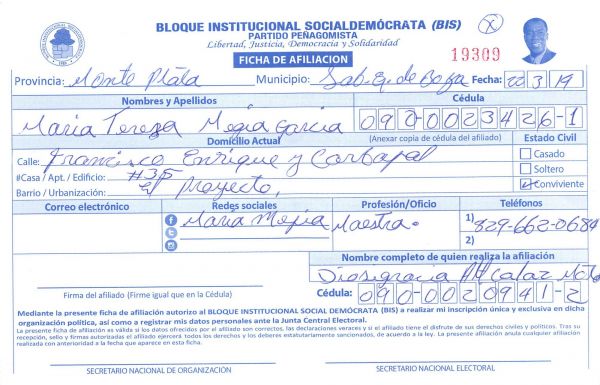 BLOQUE INSTITUCIONAL SOCIALDEMÓCRATA (BIS)
PARTIDO PEÑAGOMISTA
Libertad, Justicia, Democracia y Solidaridad
FICHA DE AFILIACION
19309
Provincia: Monte Plata Municipio: Sab. G. de Boya Fecha: 22 3 19
Nombres y Apellidos Cédula
Maria Tereza Megia Garcia 090-0023426-1
Domicilio Actual (Anexar copia de cédula del afiliado) Estado Civil
Calle: Francisco Enrique y Carbajal Casado
#Casa / Apt. / Edificio: #35 Soltero
Barrio / Urbanización: El Proyecto, Conviviente
Correo electrónico Redes sociales Profesión/Oficio Teléfonos
Maria Mejia Maestra. 1) 829-662-0684
2)
Nombre completo de quien realiza la afiliación
Diosigracia Alcalaz
Firma del afiliado (Firme igual que en la Cédula) Cédula: 090-0020941-2
Mediante la presente ficha de afiliación autorizo al BLOQUE INSTITUCIONAL SOCIAL DEMÓCRATA (BIS) a realizar mi inscripción única y exclusiva en dicha
organización política, así como a registrar mis datos personales ante la Junta Central Electoral.
La presente ficha de afiliación es válida si los datos ofrecidos por el afiliado son correctos, las declaraciones veraces y si el afiliado tiene el disfrute de sus derechos civiles y políticos. Tras su
recepción, sello y firmas autorizadas el afiliado ejercerá todos los derechos y los deberes estatutariamente sancionados, de acuerdo a la ley. La presente afiliación anula cualquier afiliación
realizada con anterioridad a la fecha que aparece en esta ficha.
SECRETARIO NACIONAL DE ORGANIZACIÓN SECRETARIO NACIONAL ELECTORAL